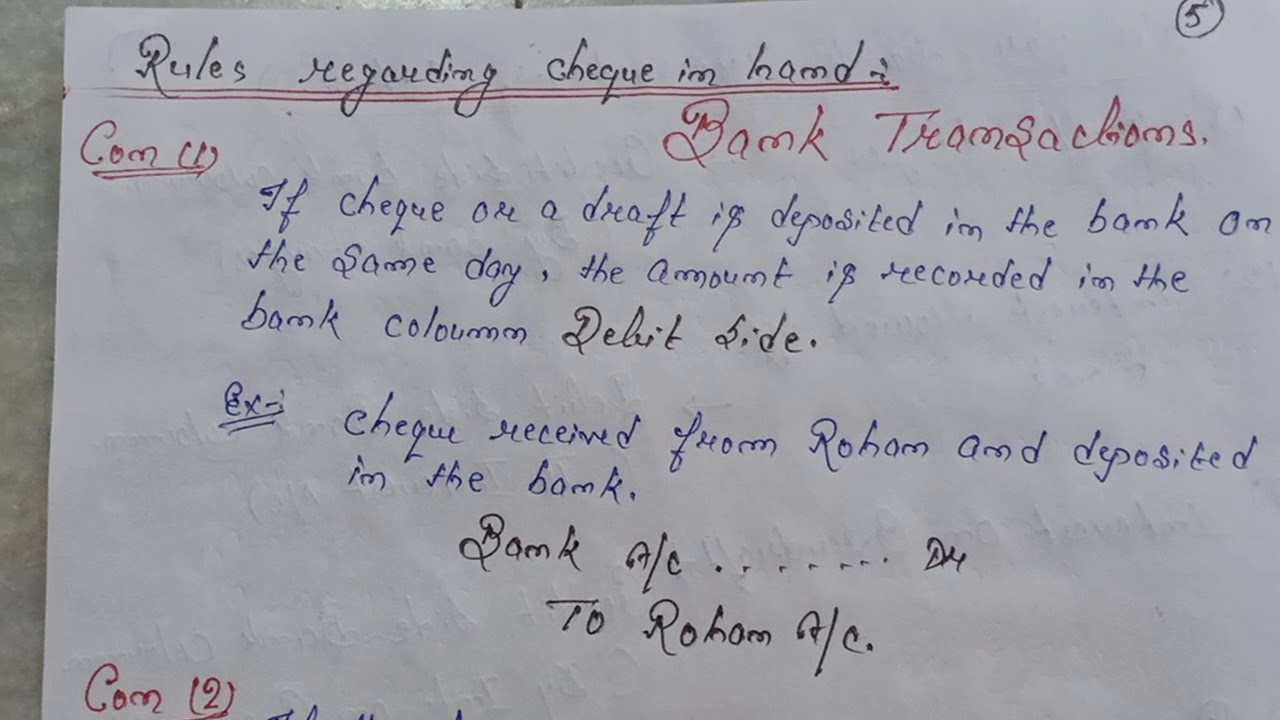 5
Rules regarding cheque in hand :
Bank Transactions.
Con (1)
If cheque or a draft is deposited in the bank on
the same day, the amount is recorded in the
bank coloumn Debit Side.
Ex-: Cheque received from Rohan and deposited
in the bank.
Bank A/c ........ Dr
To Rohan A/c.
Con (2)